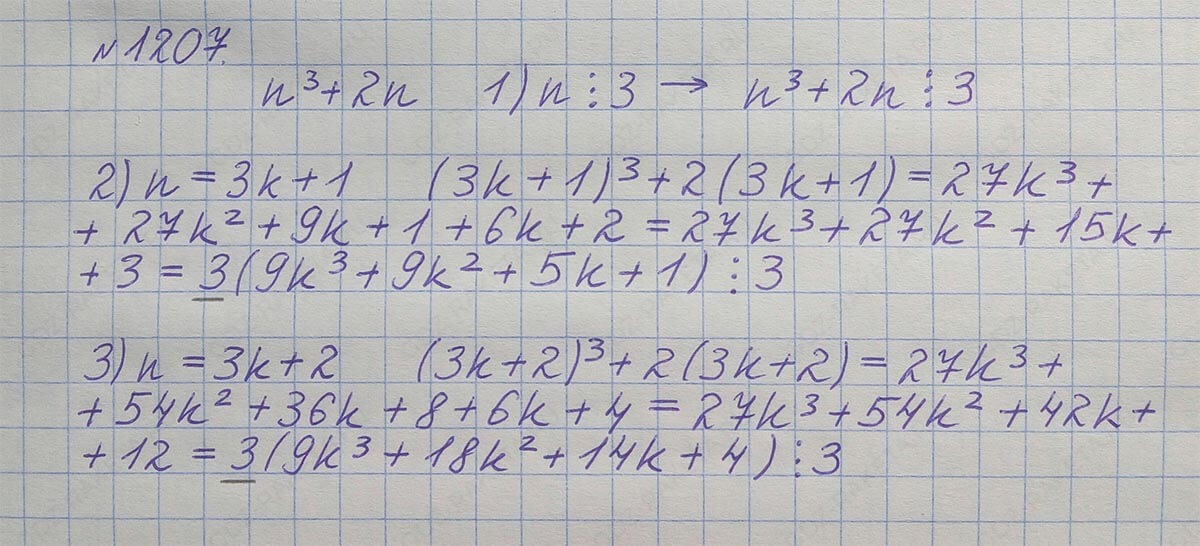 №1207.
n³+2n 1) n ⋮ 3 → n³+2n ⋮ 3
2) n = 3k+1 (3k+1)³+2(3k+1)=27k³+
+ 27k²+9k+1+6k+2=27k³+27k²+15k+
+3=3(9k³+9k²+5k+1) ⋮ 3
3) n = 3k+2 (3k+2)³+2(3k+2)=27k³+
+54k²+36k+8+6k+4=27k³+54k²+42k+
+12=3(9k³+18k²+14k+4) ⋮ 3